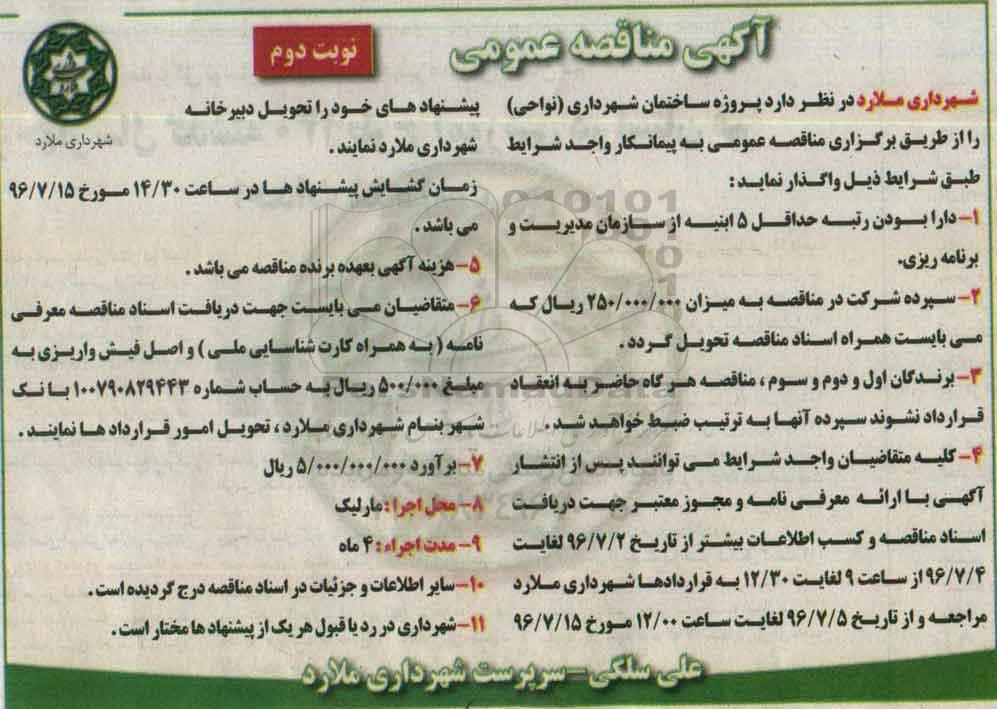 آگهی مناقصه عمومی
نوبت دوم
شهرداری ملارد
شهرداری ملارد در نظر دارد پروژه ساختمان شهرداری (نواحی)
را از طریق برگزاری مناقصه عمومی به پیمانکار واجد شرایط
طبق شرایط ذیل واگذار نماید :
۱- دارا بودن رتبه حداقل ۵ ابنیه از سازمان مدیریت و
برنامه ریزی.
۲- سپرده شرکت در مناقصه به میزان ۲۵۰/۰۰۰/۰۰۰ ریال که
می بایست همراه اسناد مناقصه تحویل گردد .
۳- برندگان اول و دوم و سوم ، مناقصه هر گاه حاضر به انعقاد
قرارداد نشوند سپرده آنها به ترتیب ضبط خواهد شد .
۴- کلیه متقاضیان واجد شرایط می توانند پس از انتشار
آگهی با ارائه معرفی نامه و مجوز معتبر جهت دریافت
اسناد مناقصه و کسب اطلاعات بیشتر از تاریخ ۹۶/۷/۲ لغایت
۹۶/۷/۴ از ساعت ۹ لغایت ۱۲/۳۰ به قراردادها شهرداری ملارد
مراجعه و از تاریخ ۹۶/۷/۵ لغایت ساعت ۱۲/۰۰ مورخ ۹۶/۷/۱۵
پیشنهاد های خود را تحویل دبیرخانه
شهرداری ملارد نمایند .
زمان گشایش پیشنهاد ها در ساعت ۱۴/۳۰ مورخ ۹۶/۷/۱۵
می باشد .
۵- هزینه آگهی بعهده برنده مناقصه می باشد .
۶- متقاضیان می بایست جهت دریافت اسناد مناقصه معرفی
نامه ( به همراه کارت شناسایی ملی ) و اصل فیش واریزی به
مبلغ ۵۰۰/۰۰۰ ریال به حساب شماره ۱۰۰۷۹۰۸۲۹۴۴۳ بانک
شهر بنام شهرداری ملارد ، تحویل امور قرارداد ها نمایند .
۷- برآورد ۵/۰۰۰/۰۰۰/۰۰۰ ریال
۸- محل اجرا : مارلیک
۹- مدت اجراء : ۴ ماه
۱۰- سایر اطلاعات و جزئیات در اسناد مناقصه درج گردیده است .
۱۱- شهرداری در رد یا قبول هر یک از پیشنهاد ها مختار است .
علی سلکی - سرپرست شهرداری ملارد